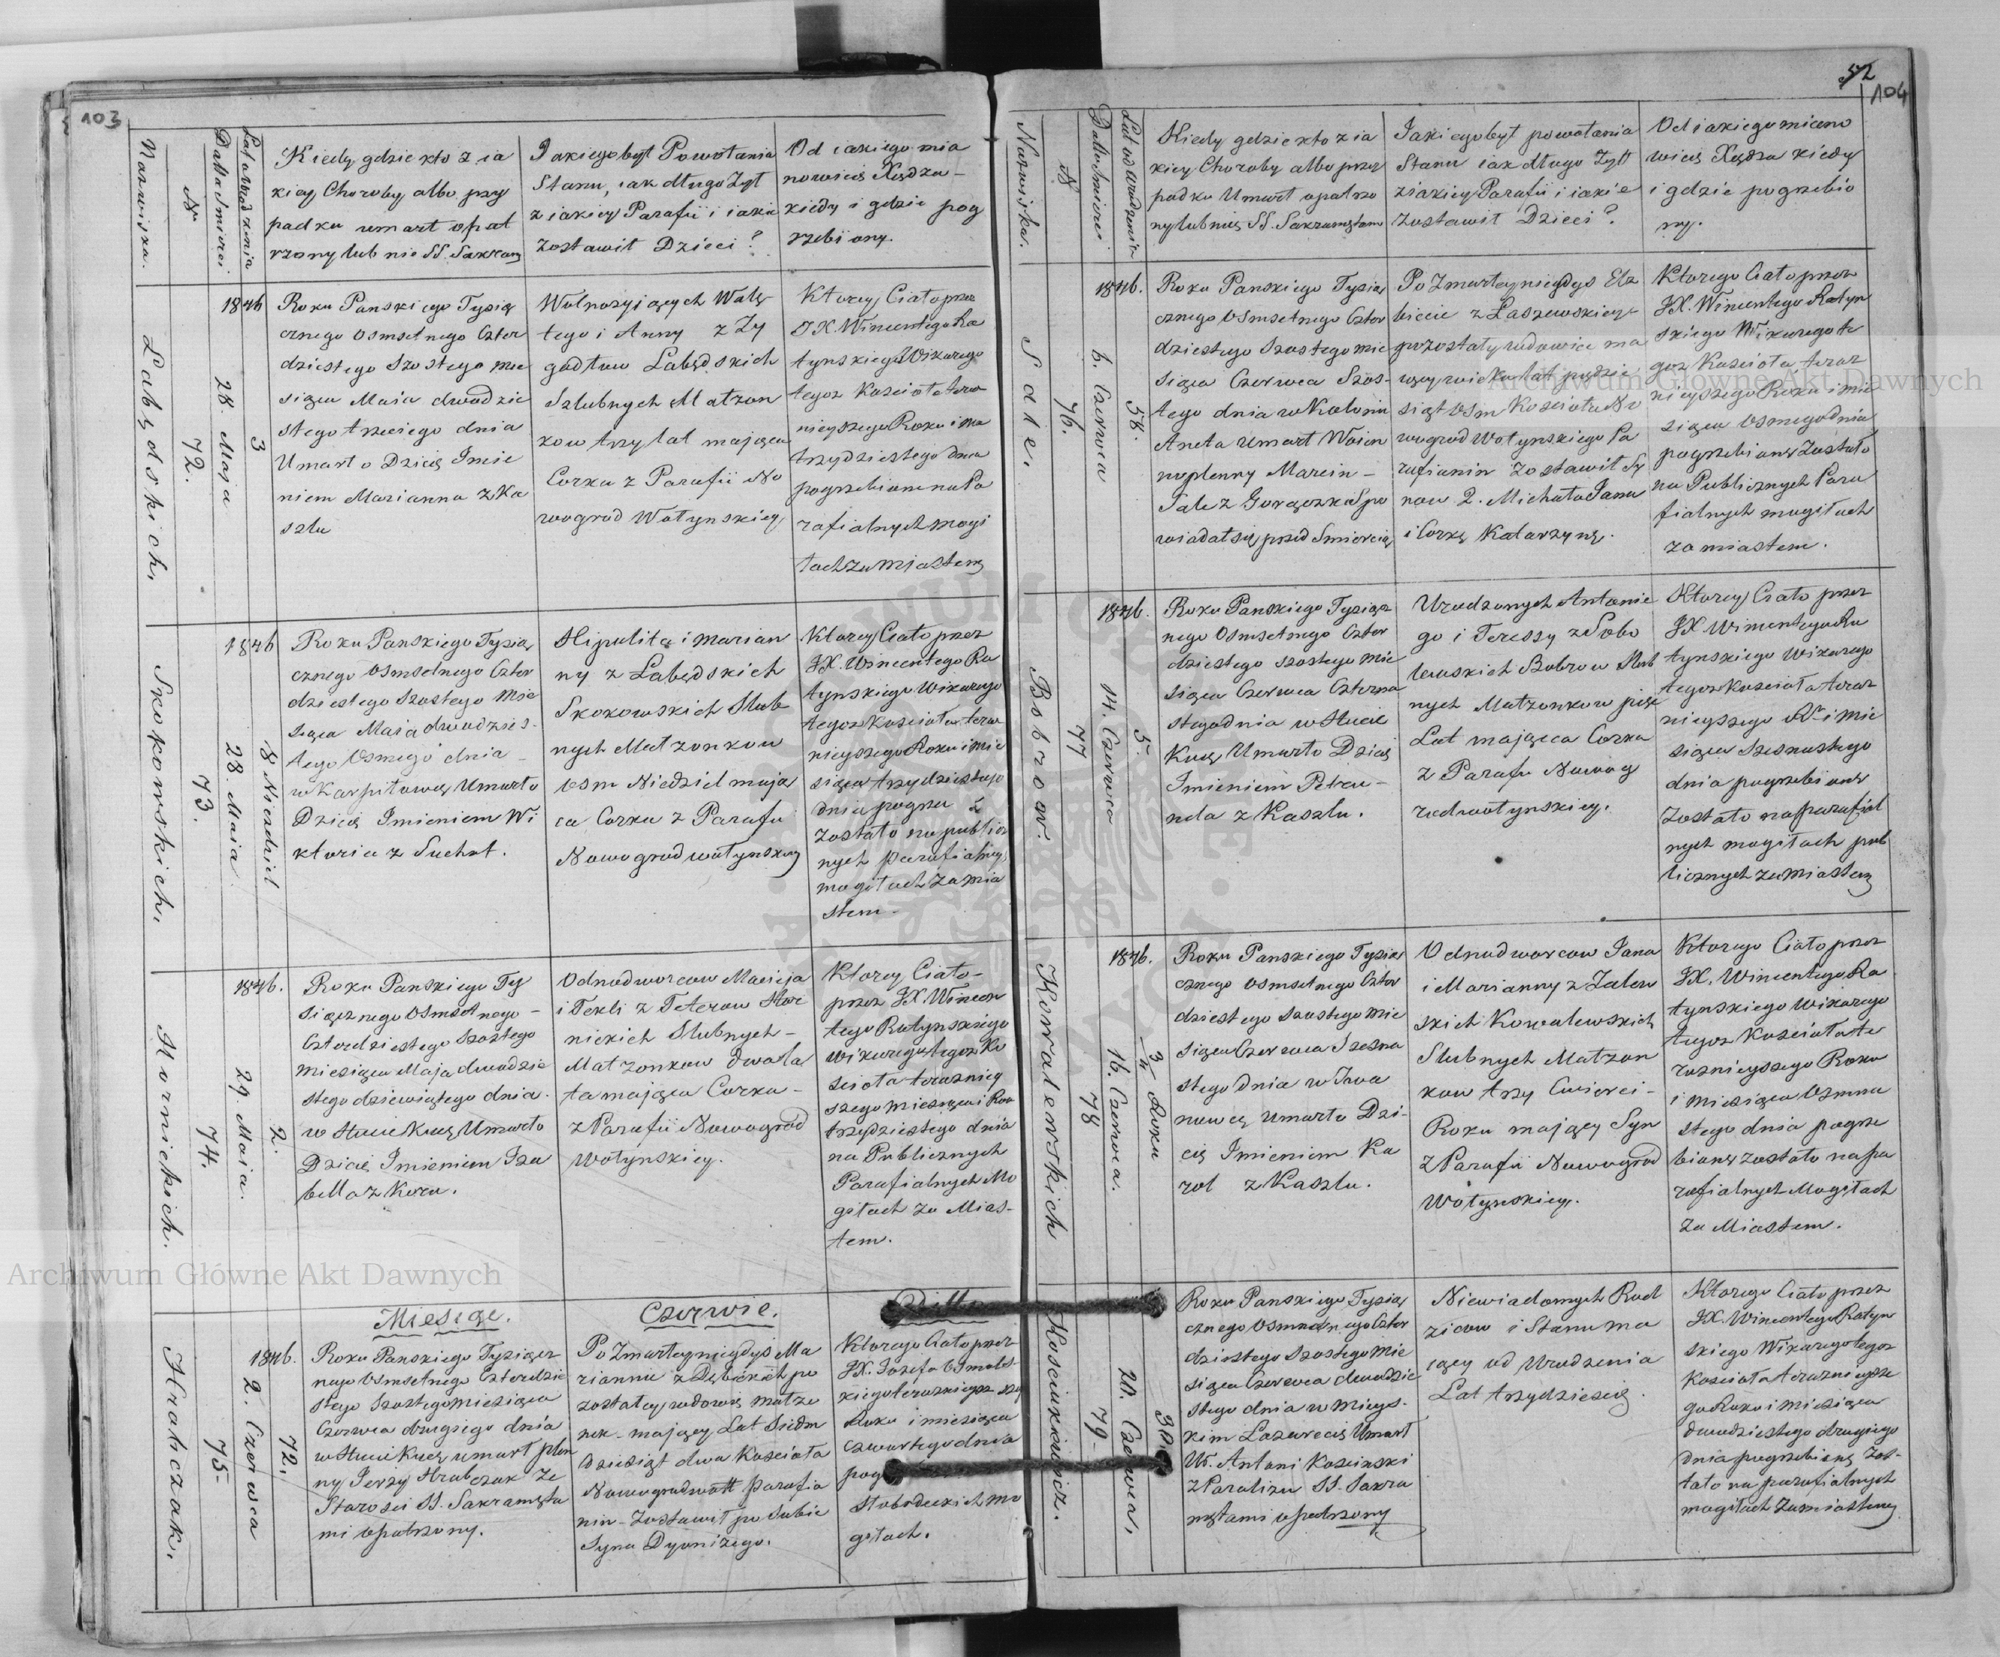 103
Nazwiska.
N
Datta Śmierci
Lat od urodzenia
Kiedy gdzie kto z ia
kiey Choroby albo przy
padku umarł opat
rzony lub nie SS. Sakram
Jakiego był Powołania
Stanu, iak długo Żył
z iakiey Parafii i iakie
zostawił Dzieci?
Od iakiego mia
nowicie Xiędza
kiedy i gdzie pog
rzebiony.
Łabędskich.
72.
1846
28. Maja
3
Roku Panskiego Tysią
cznego Osmsetnego Czter
dziestego Szostego mie
siąca Maia dwudzie
stego trzeciego dnia
Umarło Dziecię Imie
niem Marianna z Ka
szlu
Wolnożyjących Walę
tego i Anny z Zy
gadłow Łabędskich
Szlubnych Małżon
kow trzy lat maiąca
Corka z Parafii No
wogrod Wołynskiey
Ktorey Ciało przez
JX Wincentego Ra
tynskiego Wikarego
tegoż Kościoła tera
nieyszego Roku i mca
trzydziestego dnia
pogrzebione na Pa
rafialnych mogi
łach za miastem
Skokowskich.
73.
1846
28. Maia
8 Niedziel
Roku Panskiego Tysią
cznego Osmsetnego Czter
dziestego Szostego Mie
siąca Maia dwudzies-
tego Osmego dnia
w Karpiłowcę Umarło
Dziecię Imieniem Wi
ktoria z Suchot.
Hipolita i Marian
ny z Łabędskich
Skokowskich Slub
nych Małżonkow
osm Niedziel maią
ca Corka z Parafii
Nowogrodwołynskiey
Ktorey Ciało przez
JX. Wincentego Ra
tynskiego Wikarego
tegoż Kościoła tera
nieyszego Roku i mie
siąca trzydziestego
dnia pogrze
zostało na publicz
nych parafialnych
mogiłach za mia
stem.
Hornickich.
74.
1846.
29. Maia.
2.
Roku Panskiego Ty
siącznego Osmsetnego
Czterdziestego Szostego
Miesiąca Maja dwudzie
stego dziewiątego dnia
w Hucie Kucę Umarło
Dziecię Imieniem Iza
bella z Koru.
Odnodworcow Macieja
i Tekli z Teterow Hor
nickich Slubnych
Małżonkow dwa la
ta maiąca Corka
z Parafii Nowogrod
Wołynskiey.
Ktorey Ciało
przez JX Wincen
tego Ratynskiego
Wikarego tegoż Ko
scioła terazniey
szego miesiąca i Rou
trzydziestego dnia
na Publicznych
Parafialnych Mo
giłach za Mias-
tem.
Miesiąc.
Czerwie.
Hrabczak.
75.
1846.
2. Czerwca
72.
Roku Panskiego Tysiącz
nego Osmsetnego Czterdzie
stego Szostego miesiąca
Czerwca drugiego dnia
w Hucie Kucę umarł plen
ny Jerzy Hrabczak Ze
Starości SS. Sakramęta
mi opatrzony.
Po Zmarłey niegdys Ma
riannie z Dębickich po
zostałey wdowiec małżo
nek maiący Lat Siedm
dziesiąt dwa Kościoła
Nowogrodwoł parafia
nin Zostawił po Sobie
Syna Dyonizego.
Ktorego Ciało przez
JX. Jozefa
kiego terazniejsz
Roku i miesiąca
czwartego dnia
pog
Słobodeckich mo
giłach.
52
104
Nazwiska.
N
Datta śmierci
Lat od urodzenia
Kiedy gdzie kto z ia
kiey Choroby albo przy
padku Umarł opatrzo
ny lub nie SS. Sakramętam
Jakiego był powołania
Stanu iak długo Żył
z iakiey Parafii i iakie
zostawił Dzieci?
Od iakiego miano
wicie Xiędza kiedy
i gdzie pogrzebio
ny.
Sale.
76.
1846.
6. Czerwca
58.
Roku Panskiego Tysią
cznego Osmsetnego Czter
dziestego Szostego mie
siąca Czerwca Szos-
tego dnia w Kolonii
Aneta Umarł Woien
noplenny Marcin
Sale z Gorączka Spo
wiadał się przed Smiercią
Po Zmarłey niegdys Elż
biecie z Łaszewskiey
pozostały wdowiec ma
iący wieku lat piędzie
siąt osm Kościoła No
wogrod Wołynskiego Pa
rafianin zostawił Sy
now 2. Michała Jana
i Corkę Katarzynę.
Ktorego Ciało przez
JX. Wincentego Ratyn
skiego Wikarego te
goż Kościoła teraz
nieyszego Roku i mie
siąca osmego dnia
pogrzebione Zostało
na Publicznych Para
fialnych mogiłach
za miastem.
Bobrow.
77
1846.
14. Czerwca
5.
Roku Panskiego Tysiącz
nego Osmsetnego Czter
dziestego szostego mie
siąca Czerwca Czterna
stego dnia w Hucie
Kucę Umarło Dziecię
Imieniem Petru-
nela z Kaszlu.
Urodzonych Antonie
go i Teressy z Sobo
lewskich Bobrow Slub
nych Małżonkow pięć
Lat maiąca Corka
z Parafii Nowog
rodwołynskiey.
Ktorey Ciało przez
JX Wincentego Ra
tynskiego Wikarego
tegoż Kościoła teraz
nieyszego Rº i mie
siąca Szesnastego
dnia pogrzebione
Zostało na parafial
nych mogiłach pub
licznych za miastem
Kowalewskich
78
1846.
16. Czerwca.
3/4 Roku
Roku Panskiego Tysią
cznego Osmsetnego Czter
dziestego Szostego mie
siąca Czerwca Szesna
stego dnia w Iwa
nowcę umarło Dzi-
cię Imieniem Ka
rol z Kaszlu.
Odnodworcow Jana
i Marianny z Zalew
skich Kowalewskich
Slubnych Małżon
kow trzy Cwierci
Roku maiący Syn
z Parafii Nowogrod
Wołynskiey.
Ktorego Ciało przez
JX. Wincentego Ra
tynskiego Wikarego
tegoż Kościoła te
raznieyszego Roku
i miesiąca Osmna
stego dnia pogrze
bione zostało na pa
rafialnych Mogiłach
za Miastem.
Kościukiewicz.
79
20. Czerwca.
30
Roku Panskiego Tysią
cznego Osmsetnego Czter
dziestego Szostego mie
siąca Czerwca dwudzie
stego dnia w mieys-
kim Lazarecie Umarł
Ur. Antoni Koscinski
z Paraliżu SS. Sakra
mętami opatrzony
Niewiadomych Rod
zicow i Stanu ma
iący od Urodzenia
Lat trzydzieście.
Ktorego Ciało przez
JX. Wincentego Ratyn
skiego Wikarego tegoż
Kościoła teraznieysze
go Roku i miesiąca
dwudziestego drugiego
dnia pogrzebione Zos-
tało na parafialnych
mogiłach Za miastem
Archiwum Główne Akt Dawnych
Archiwum Główne Akt Dawnych